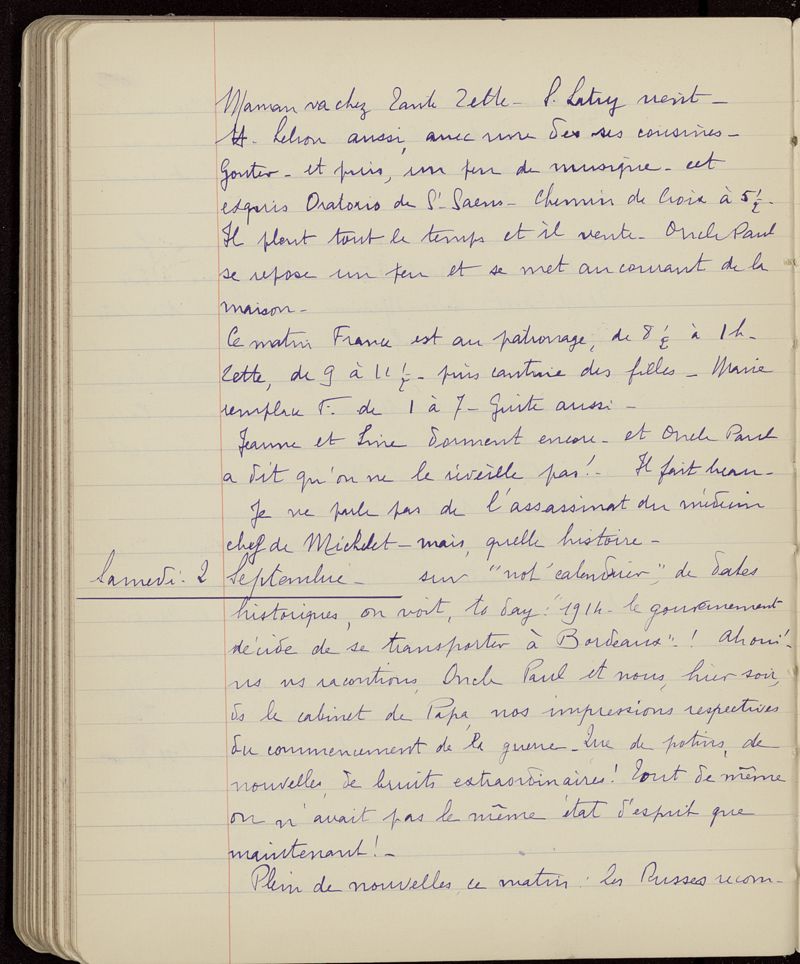 Maman va chez Tante Zette - P. Latry vient -
H. Lebon aussi, avec une de ses cousines -
Gouter - et puis, un peu de musique - cet
exquis Oratorio de St Saens - Chemin de Croix à 5 1/2 -
Il pleut tout le temps et il vente - Oncle Paul
se repose un peu et se met au courant de la
maison -
Ce matin France est au patronage, de 8 1/2 à 1h -
Zette, de 9 à 11 1/2 - puis cantine des filles - Marie
remplace F. de 1 à 7 - Guite aussi -
Jeanne et Line dorment encore - et Oncle Paul
a dit qu'on ne le réveille pas ! - Il fait beau -
Je ne parle pas de l'assassinat du médecin
chef de Michelet - mais, quelle histoire -
Samedi - 2 Septembre - sur "not' calendrier", de dates
historiques, on voit, to day : "1914 - le gouvernement
décide de se transporter à Bordeaux" ! Ah oui ! -
ns ns racontions, Oncle Paul et nous, hier soir,
ds le cabinet de Papa, nos impressions respectives
du commencement de la guerre - Que de potins, de
nouvelles, de bruits extraordinaires ! Tout de même
on n'avait pas le même état d'esprit que
maintenant ! -
Plein de nouvelles, ce matin : les Russes recom-